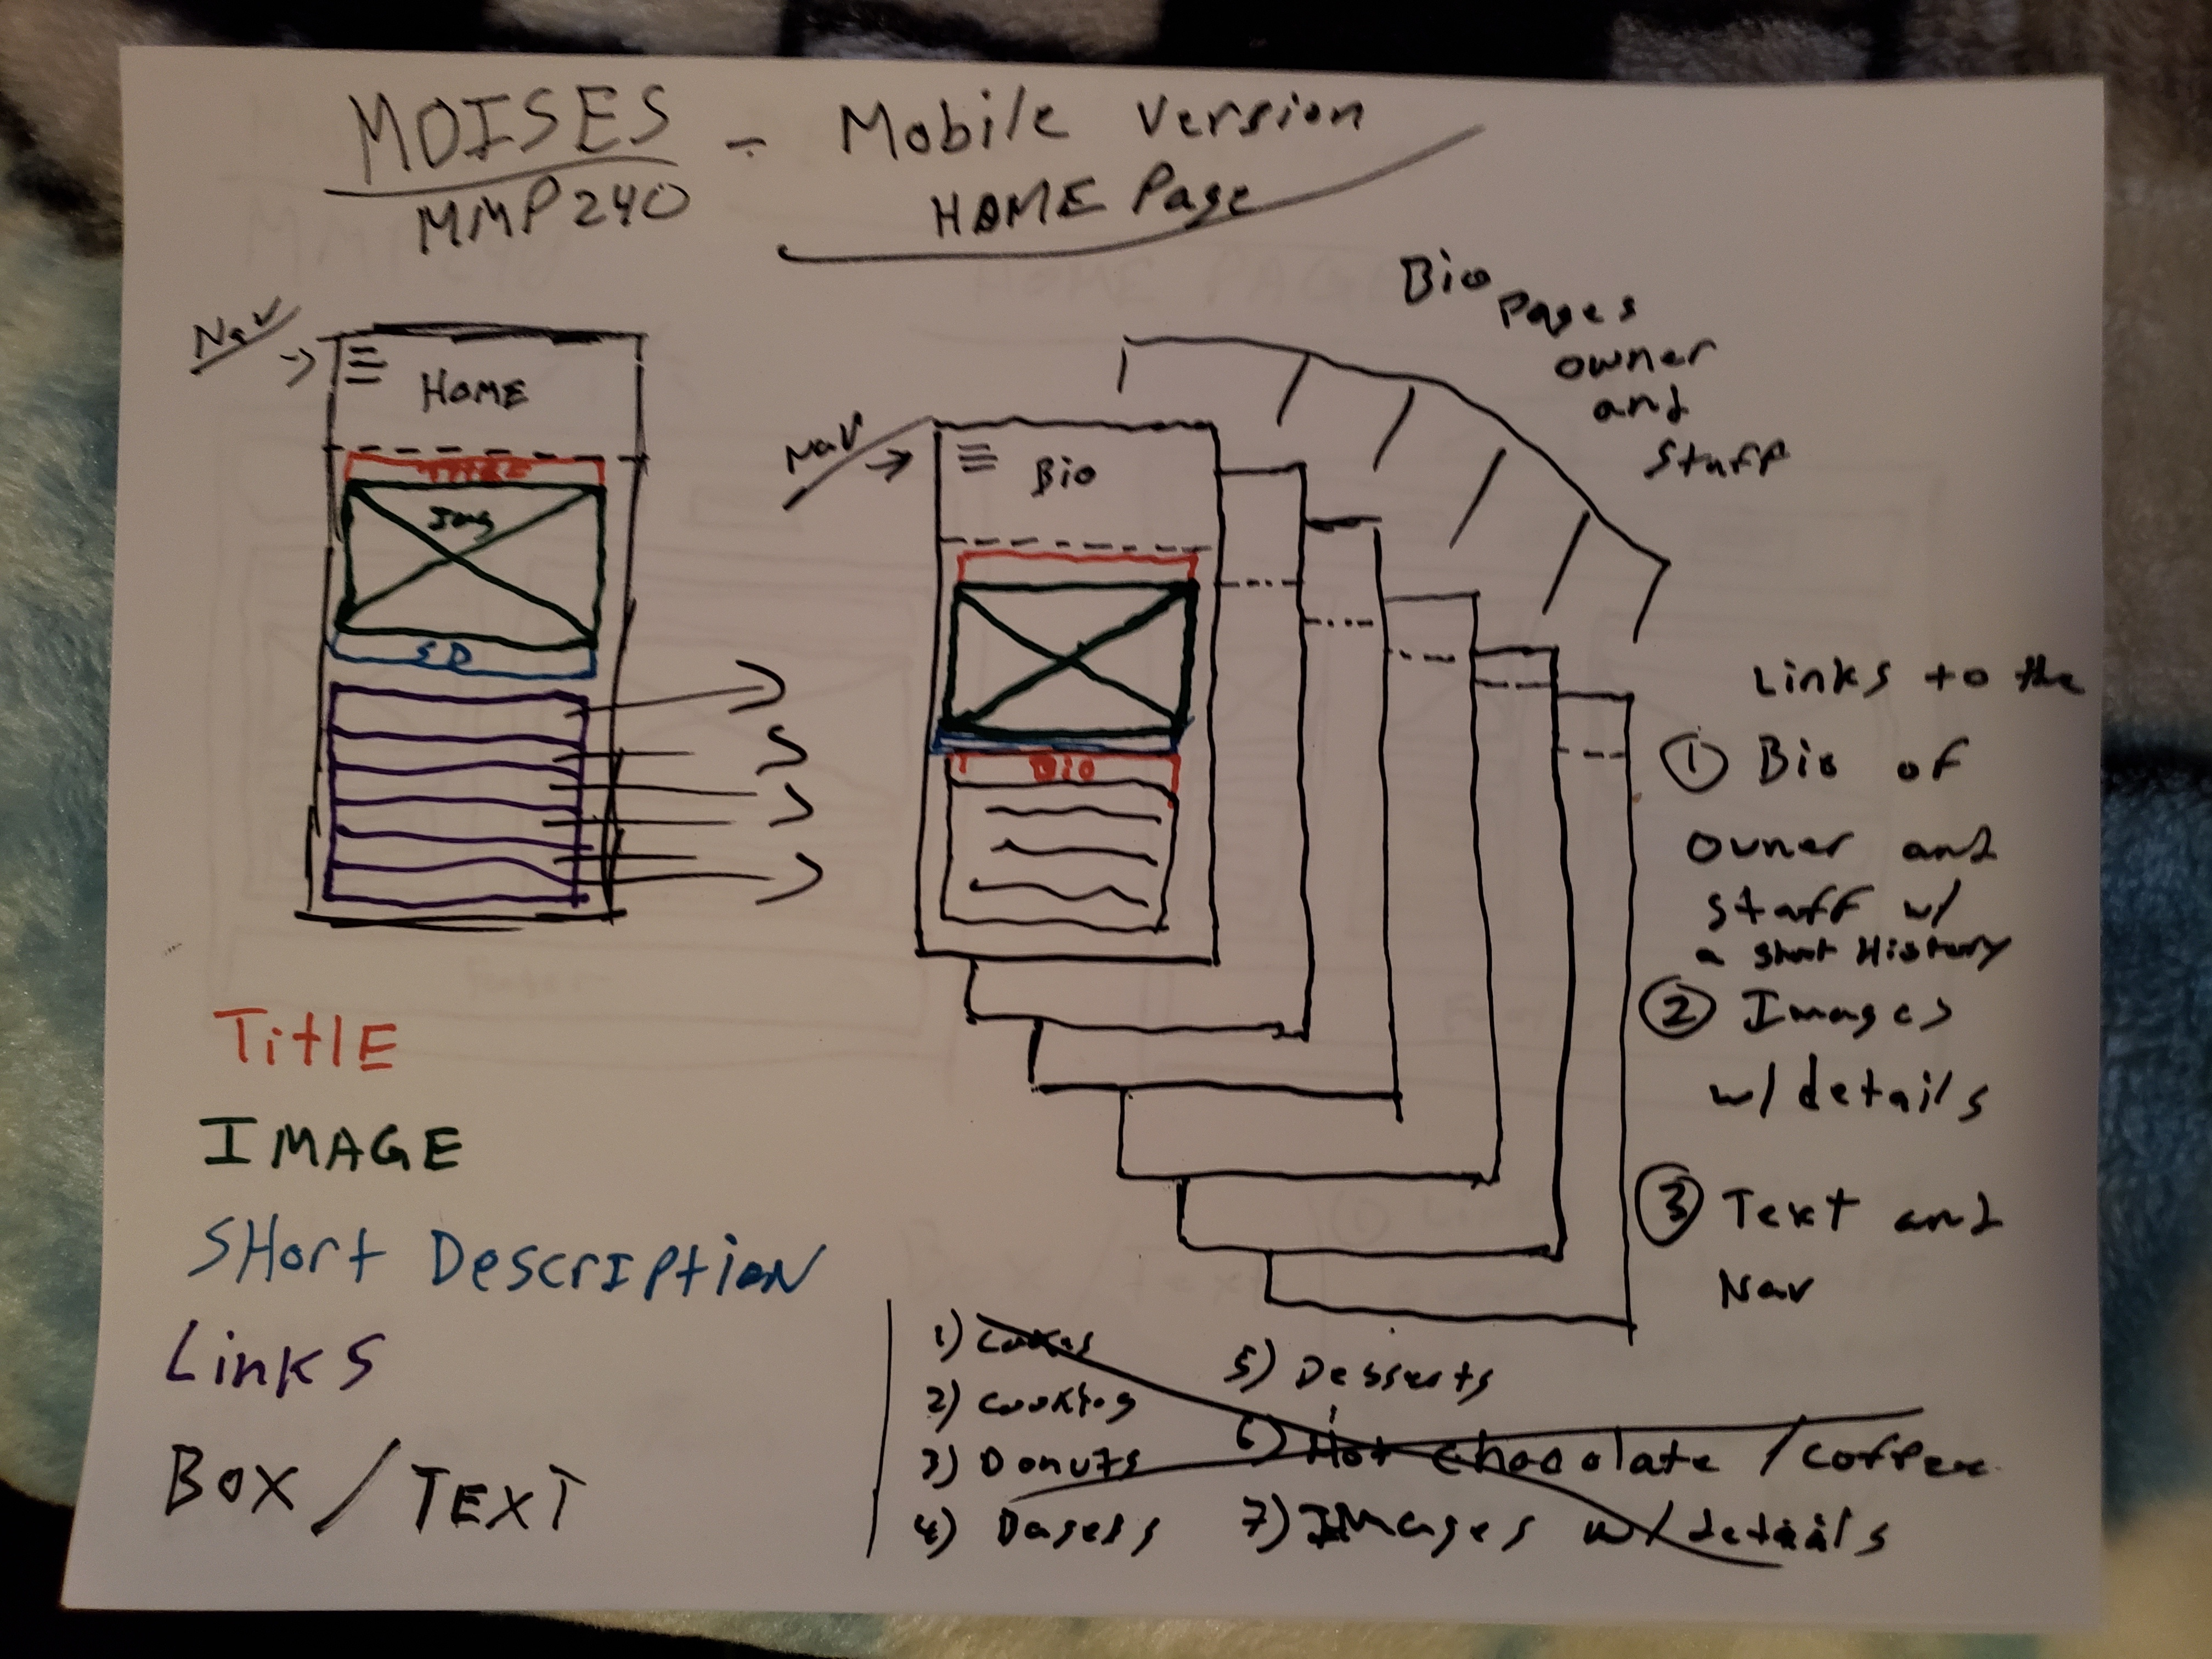 MOISES - Mobile Version
MMP240
HOME Page
Nav
HOME
TITLE
Img
SD
Nav
Bio
Bio
Bio
Pages
owner
and
Staff
Links to the
① Bio of
owner and
staff w/
a short History
② Images
w/ details
③ Text and
Nav
Title
IMAGE
SHort Description
Links
Box / TEXT
1)
2)
3) Donuts
4)
5) Desserts
6) Hot chocolate / coffee
7) IMages w/ details